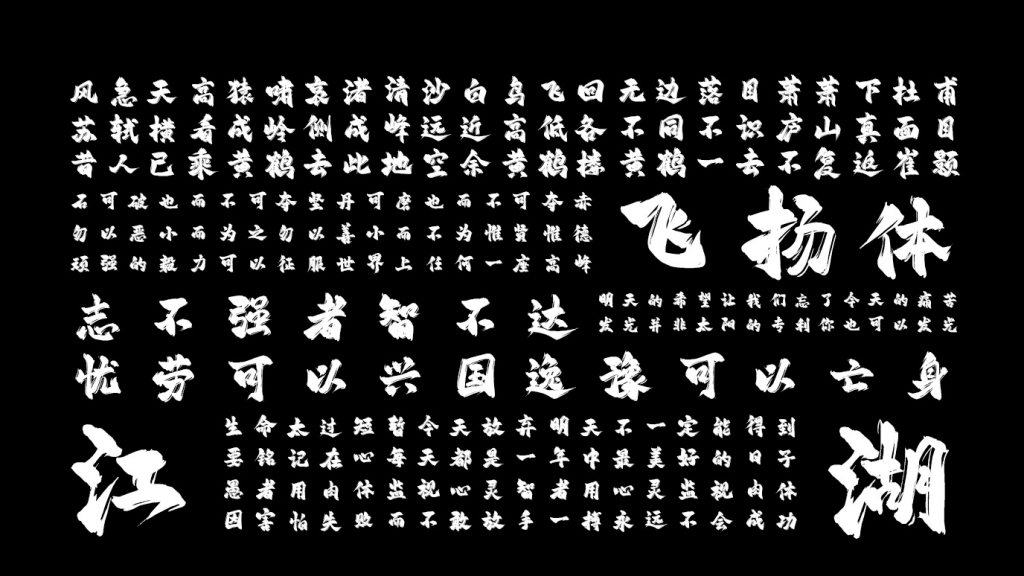 风急天高猿啸哀渚清沙白鸟飞回无边落目萧萧下杜甫
苏轼横看成岭侧成峰远近高低各不同不识庐山真面目
昔人已乘黄鹤去此地空余黄鹤楼黄鹤一去不复返崔颢
石可破也而不可夺坚丹可磨也而不可夺赤
勿以恶小而为之勿以善小而不为惟贤惟德
顽强的毅力可以征服世界上任何一座高峰
飞扬体
志不强者智不达
明天的希望让我们忘了今天的痛苦
发光并非太阳的专利你也可以发光
忧劳可以兴国逸豫可以亡身
江湖
生命太过短暂今天放弃明天不一定能得到
要铭记在心每天都是一年中最美好的日子
愚者用肉体监视心灵智者用心灵监视肉体
因害怕失败而不敢放手一搏永远不会成功